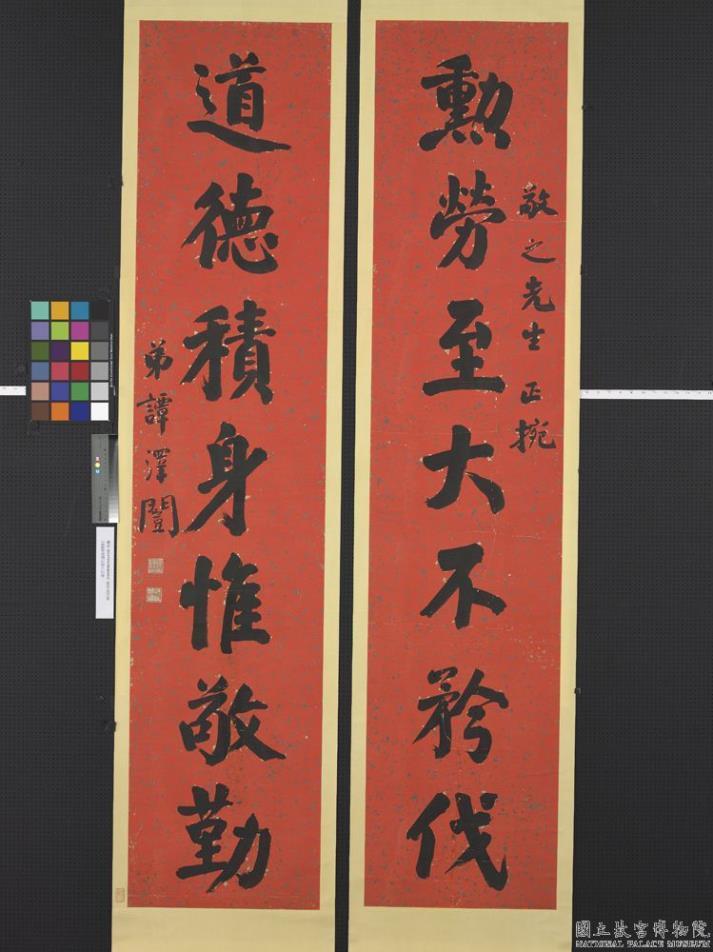 勳勞至大不矜伐
敬之先生正捥
道德積身惟敬勤
弟譚澤闓
國立故宮博物院
NATIONAL PALACE MUSEUM